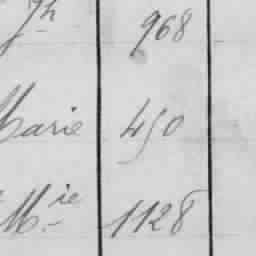 Jh 968
Marie 450
Mie 1128